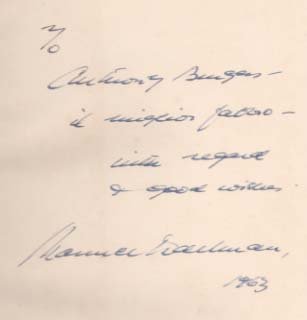 To
Anthony Burgess –
il miglior fabbro –
with regard
& good wishes.
1963